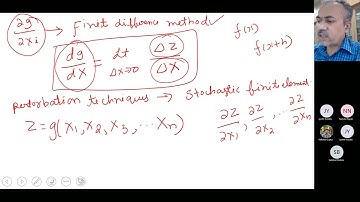 ∂g/∂xi → Finit difference method ✓ f(x)
dg/dX = Lt ΔX→0 ΔZ/ΔX f(x+h)
perturbation techniques → Stochastic finite element
Z = g(X1, X2, X3, ... Xn) ∂Z/∂X1, ∂Z/∂X2, ... ∂Z/∂Xn
JY
NN
JY
SB